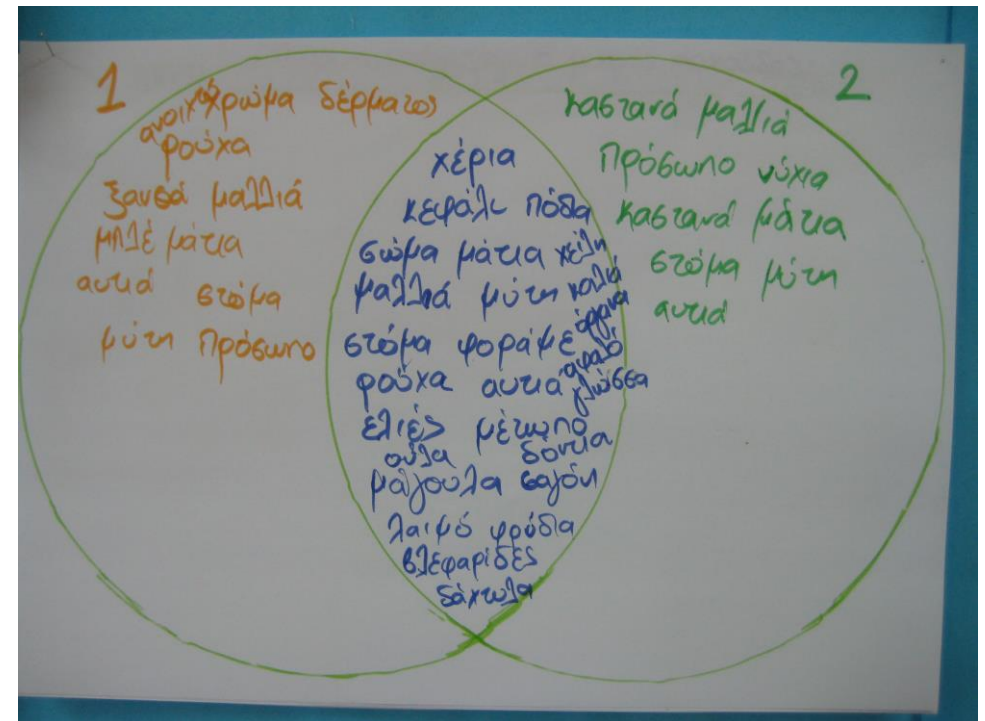 1
ανοιχτό χρώμα δέρματος
ρούχα
ξανθά μαλλιά
μπλέ μάτια
αυτιά στόμα
μύτη πρόσωπο
χέρια
κεφάλι πόδια
σώμα μάτια χείλη
μαλλιά μύτη
στόμα φοράμε όργανα
ρούχα αυτιά αφαλό
γλώσσα
ελιές μέτωπο
ούλα δόντια
μάγουλα σαγόνι
λαιμό φρύδια
βλεφαρίδες
δάχτυλα
2
καστανά μαλλιά
πρόσωπο νύχια
καστανά μάτια
στόμα μύτη
αυτιά